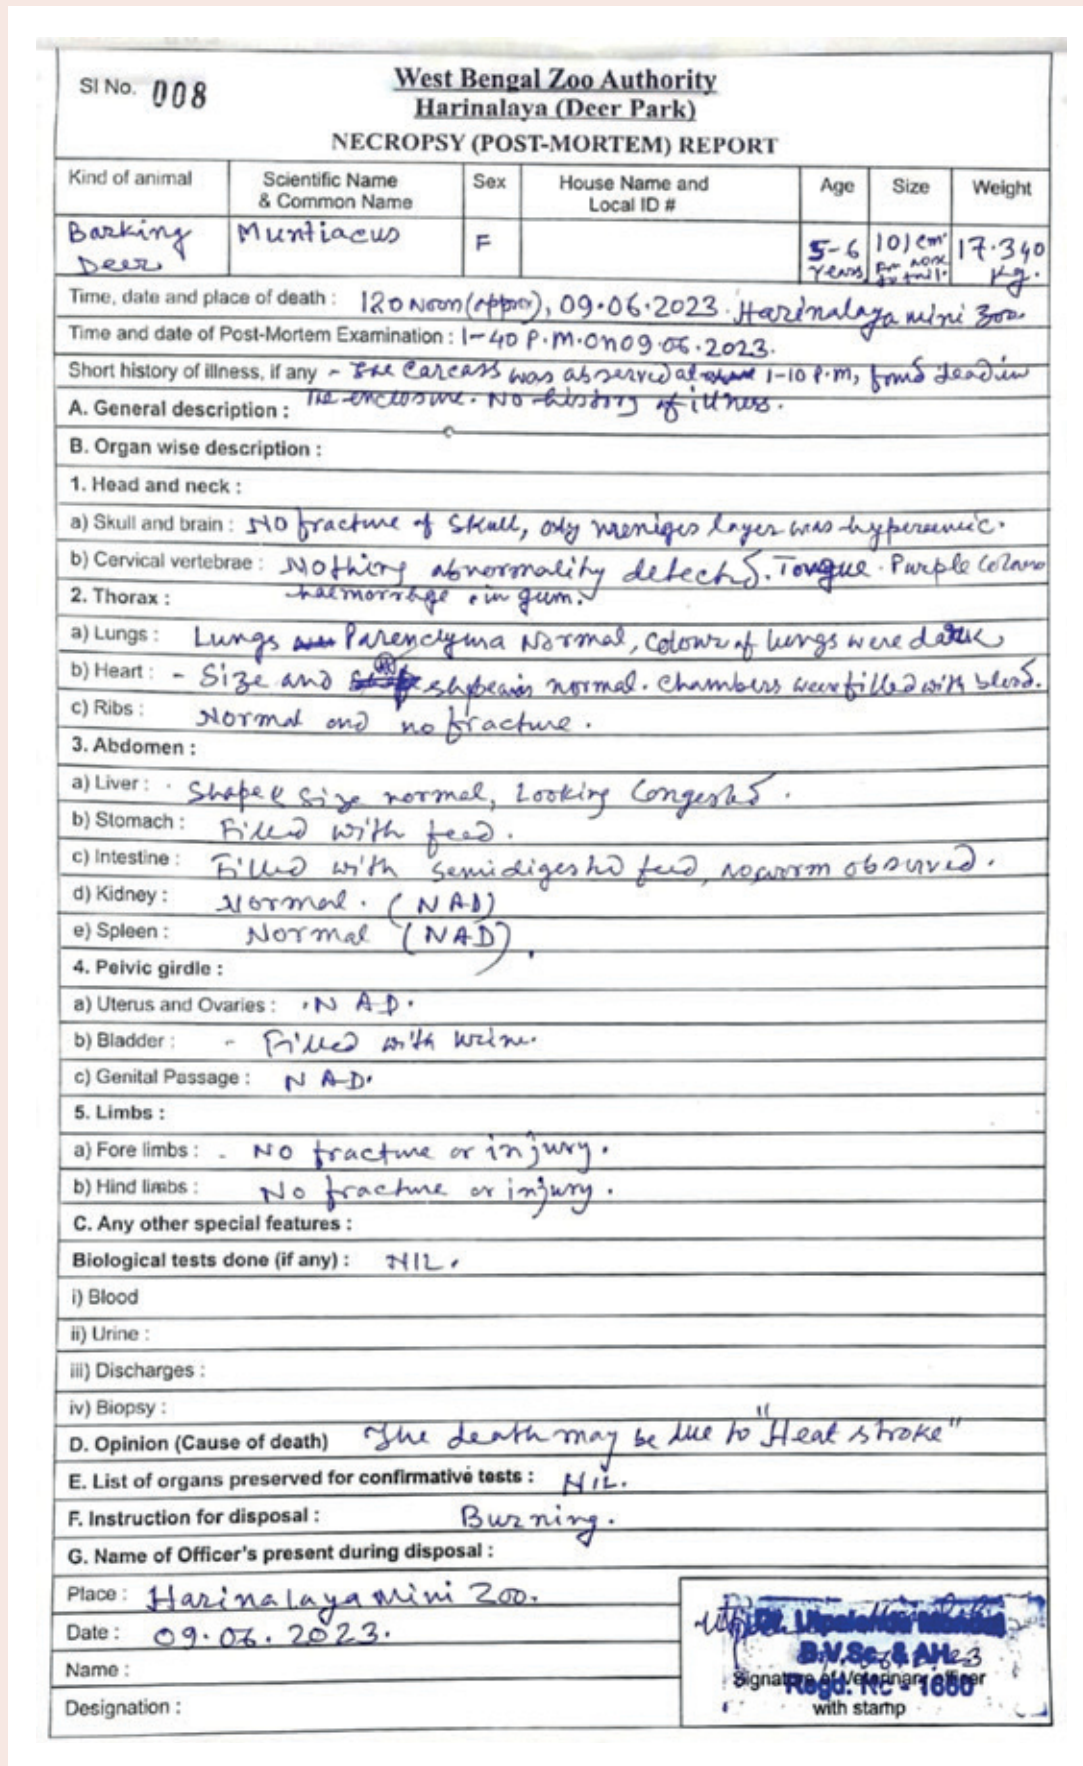 Sl No. 008
West Bengal Zoo Authority
Harinalaya (Deer Park)
NECROPSY (POST-MORTEM) REPORT
Kind of animal Scientific Name & Common Name Sex House Name and Local ID # Age Size Weight
Barking Deer Muntiacus F 5-6 years 101 cm nose to tail. 17.340 kg.
Time, date and place of death : 120 Noon (approx), 09.06.2023. Harinalaya mini zoo.
Time and date of Post-Mortem Examination : 1-40 P.M. on 09.06.2023.
Short history of illness, if any - The carcass was observed at 1-10 P.m, found dead in
The enclosure. No history of illness.
A. General description :
B. Organ wise description :
1. Head and neck :
a) Skull and brain : NO fracture of Skull, only meniges layer was hyperemic.
b) Cervical vertebrae : Nothing abnormality detected. Tongue - Purple
haemorrhge in gum.
2. Thorax :
a) Lungs : Lungs Parenclyma Normal, colour of lungs were dark
b) Heart : - Size and normal. Chambers were filled with blood.
c) Ribs : Normal and no fracture.
3. Abdomen :
a) Liver : Shape & Size normal, Looking Congested.
b) Stomach : Filled with feed.
c) Intestine : Filled with semidigested feed, no worm observed.
d) Kidney : Normal. (NAD)
e) Spleen : Normal (NAD).
4. Pelvic girdle :
a) Uterus and Ovaries : N A D.
b) Bladder : - Filled with urine.
c) Genital Passage : N A D.
5. Limbs :
a) Fore limbs : - No fracture or injury.
b) Hind limbs : No fracture or injury.
C. Any other special features :
Biological tests done (if any) : NIL.
i) Blood
ii) Urine :
iii) Discharges :
iv) Biopsy :
D. Opinion (Cause of death) The death may be due to "Heat stroke"
E. List of organs preserved for confirmative tests : Nil.
F. Instruction for disposal : Burning.
G. Name of Officer's present during disposal :
Place : Harinalaya Mini Zoo.
Date : 09.06.2023.
Name :
Designation :
B.V.Sc. & AH
Regd. No - 1660
Signature of Veterinary officer
with stamp